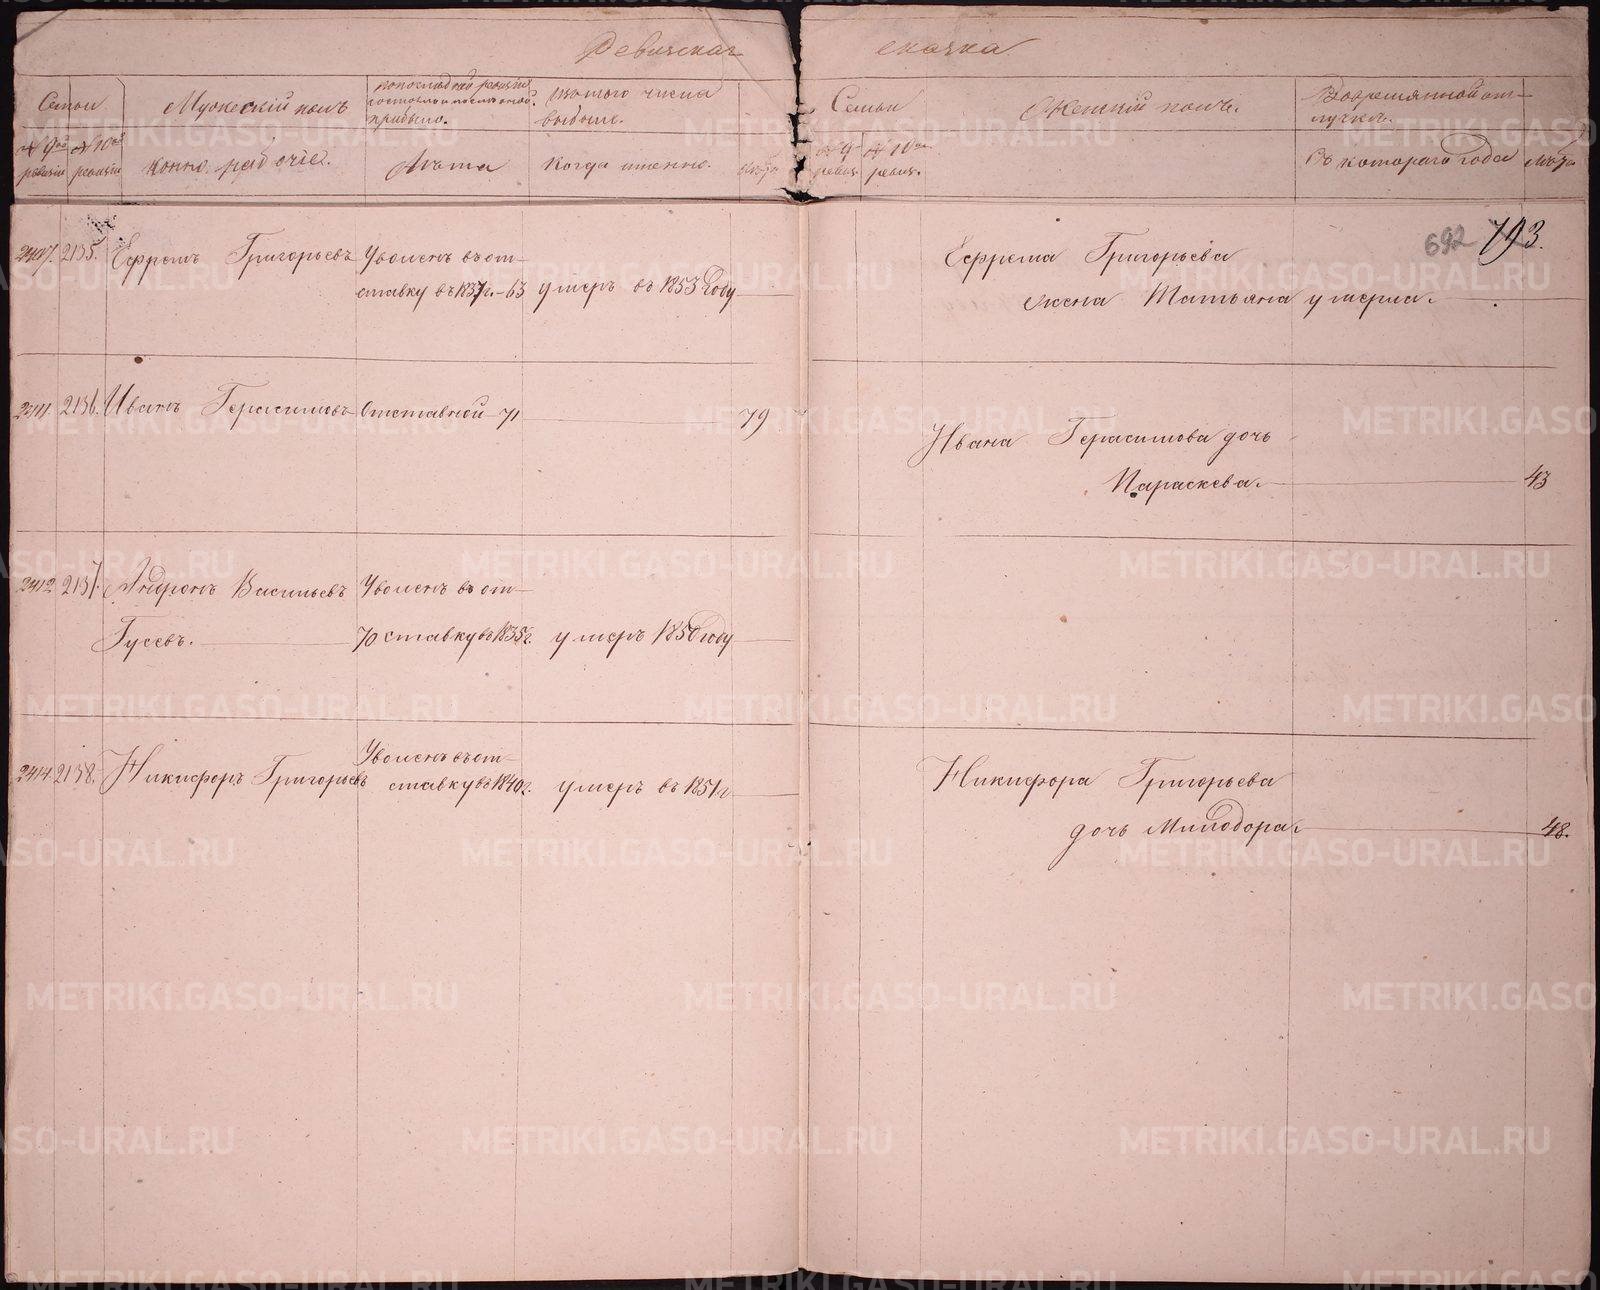 Ревизская сказка
Семьи
№ 9ой ревизіи
№ 10ой ревизіи
Мужескій полъ
конно рабочіе.
По последней ревизіи состояло и после оной прибыло.
Лѣта
Изъ того числа выбыло.
Когда именно.
Лѣта
Семьи
№ 9 ревиз.
№ 10 ревиз.
Женскій полъ.
Во временной отлучке.
Съ котораго года
Лѣта
692 793.
2407. 2135. Ефремъ Григорьевъ Уволенъ въ от-
ставку въ 1837г. - 63 умеръ въ 1853 году
Ефрема Григорьева
жена Татьяна умерла.
2411. 2136. Иванъ Герасимовъ Отставной 71 79
Ивана Герасимова дочь
Параскева. 43
2412 2137. Андронъ Васильевъ Уволенъ въ от-
Гусевъ. 70 ставку въ 1835г. умеръ 1850 году
2414 2138. Никифоръ Григорьевъ Уволенъ въ от-
ставку въ 1840г. умеръ въ 1851г
Никифора Григорьева
дочь Милодора. 48.
METRIKI.GASO-URAL.RU